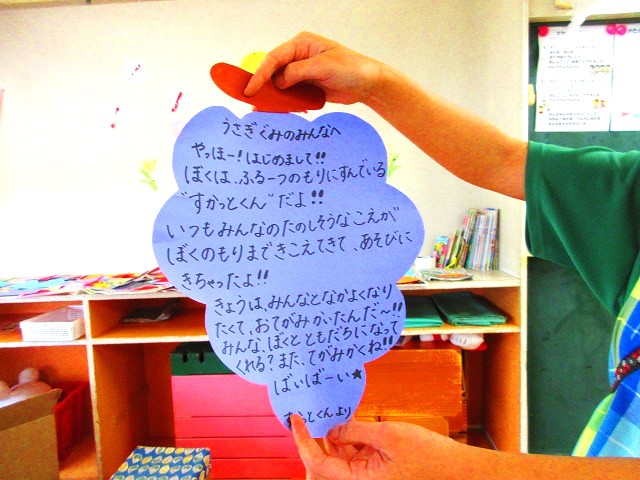 うさぎぐみのみんなへ
やっほー!はじめまして!!
ぼくは、ふるーつのもりにすんでいる
"すかっとくん"だよ!!
いつもみんなのたのしそうなこえが
ぼくのもりまできこえてきて、あそびに
きちゃったよ!!
きょうは、みんなとなかよくなり
たくて、おてがみかいたんだ〜!!
みんな、ぼくとともだちになって
くれる?また、てがみかくね!!
ばいばーい★
すかっとくんより